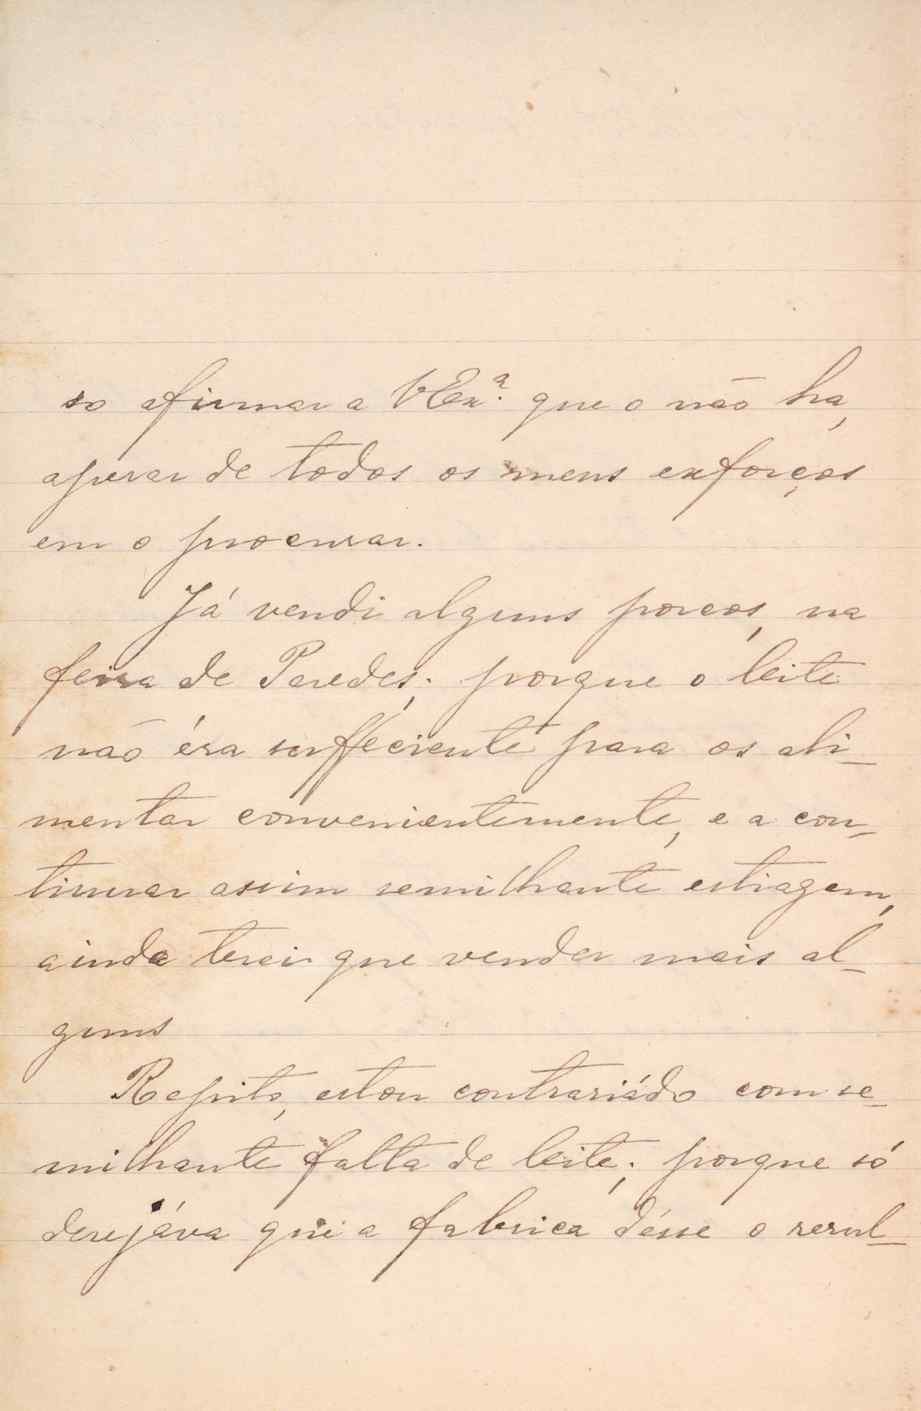 so afirmar a V Ex.ª que o não ha,
apesar de todos os meus exforços
em o procurar.
Já vendi alguns porcos, na
feira de Paredes; porque o leite
não éra sufféciente para os ali-
mentar convenientemente, e a con-
tinuar assim semilhante estiagem,
ainda terei que vender mais al-
guns
Repito, estou contrariádo com se-
milhante falta de leite; porque só
desejáva que a fabrica désse o resul-